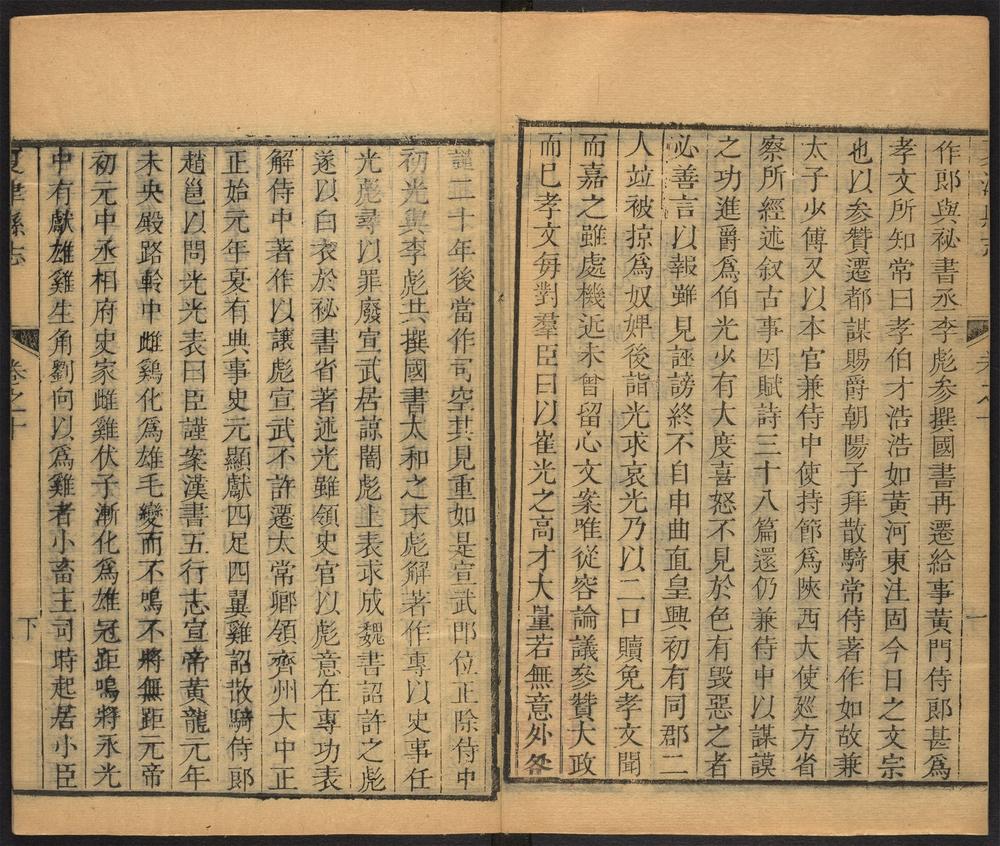 作郎與祕書丞李彪參撰國書再遷給事黃門侍郎甚爲
孝文所知常曰孝伯才浩浩如黃河東注固今日之文宗
也以參贊遷都謀賜爵朝陽子拜散騎常侍著作如故兼
太子少傅又以本官兼侍中使持節爲陝西大使廵方省
察所經述叙古事因賦詩三十八篇還仍兼侍中以謀謨
之功進爵爲伯光少有大度喜怒不見於色有毀惡之者
必善言以報雖見誣謗終不自申曲直皇興初有同郡二
人竝被掠爲奴婢後詣光求哀光乃以二口贖免孝文聞
而嘉之雖處機近未曾留心文案唯從容論議參贊大政
而已孝文每對羣臣曰以崔光之高才大量若無意外咎
譴二十年後當作司空其見重如是宣武即位正除侍中
初光與李彪共撰國書太和之末彪解著作專以史事任
光彪尋以罪廢宣武居諒闇彪上表求成魏書詔許之彪
遂以白衣於祕書省著述光雖領史官以彪意在專功表
解侍中著作以讓彪宣武不許遷太常卿領齊州大中正
正始元年夏有典事史元顯獻四足四翼雞詔散騎侍郎
趙邕以問光光表曰臣謹案漢書五行志宣帝黃龍元年
未央殿路軨中雌鷄化爲雄毛變而不鳴不將無距元帝
初元中丞相府史家雌雞伏子漸化爲雄冠距鳴將永光
中有獻雄雞生角劉向以爲雞者小畜主司時起居小臣
夏津縣志
卷之十
下